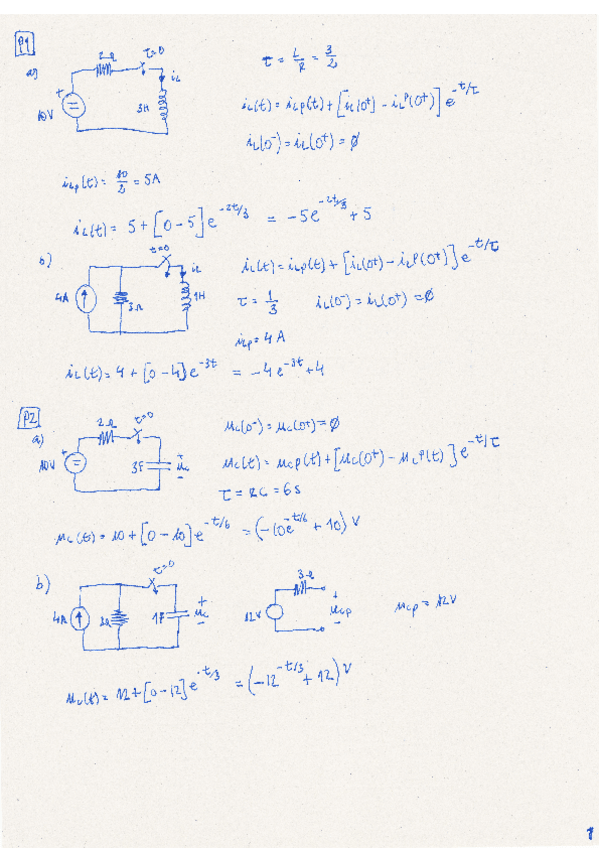 P1
a) 2Ω t=0 iL
10V 3H
τ = L/R = 3/2
iL(t) = iLp(t) + [iL(0⁺) - iLp(0⁺)] e^-t/τ
iL(0⁻) = iL(0⁺) = ∅
iLp(t) = 10/2 = 5A
iL(t) = 5 + [0-5] e^-2t/3 = -5e^-2t/3 + 5
b) t=0 iL
4A 3Ω 1H
iL(t) = iLp(t) + [iL(0⁺) - iLp(0⁺)] e^-t/τ
τ = 1/3 iL(0⁻) = iL(0⁺) = ∅
iLp = 4A
iL(t) = 4 + [0-4] e^-3t = -4e^-3t + 4
P2
a) 2Ω t=0
10V 3F uc
uc(0⁻) = uc(0⁺) = ∅
uc(t) = ucp(t) + [uc(0⁺) - ucp(t)] e^-t/τ
τ = RC = 6s
uc(t) = 10 + [0-10] e^-t/6 = (-10e^-t/6 + 10) V
b) t=0
4A 1F uc
3Ω
12V ucp
ucp = 12V
uc(t) = 12 + [0-12] e^-t/3 = (-12^-t/3 + 12) V
1